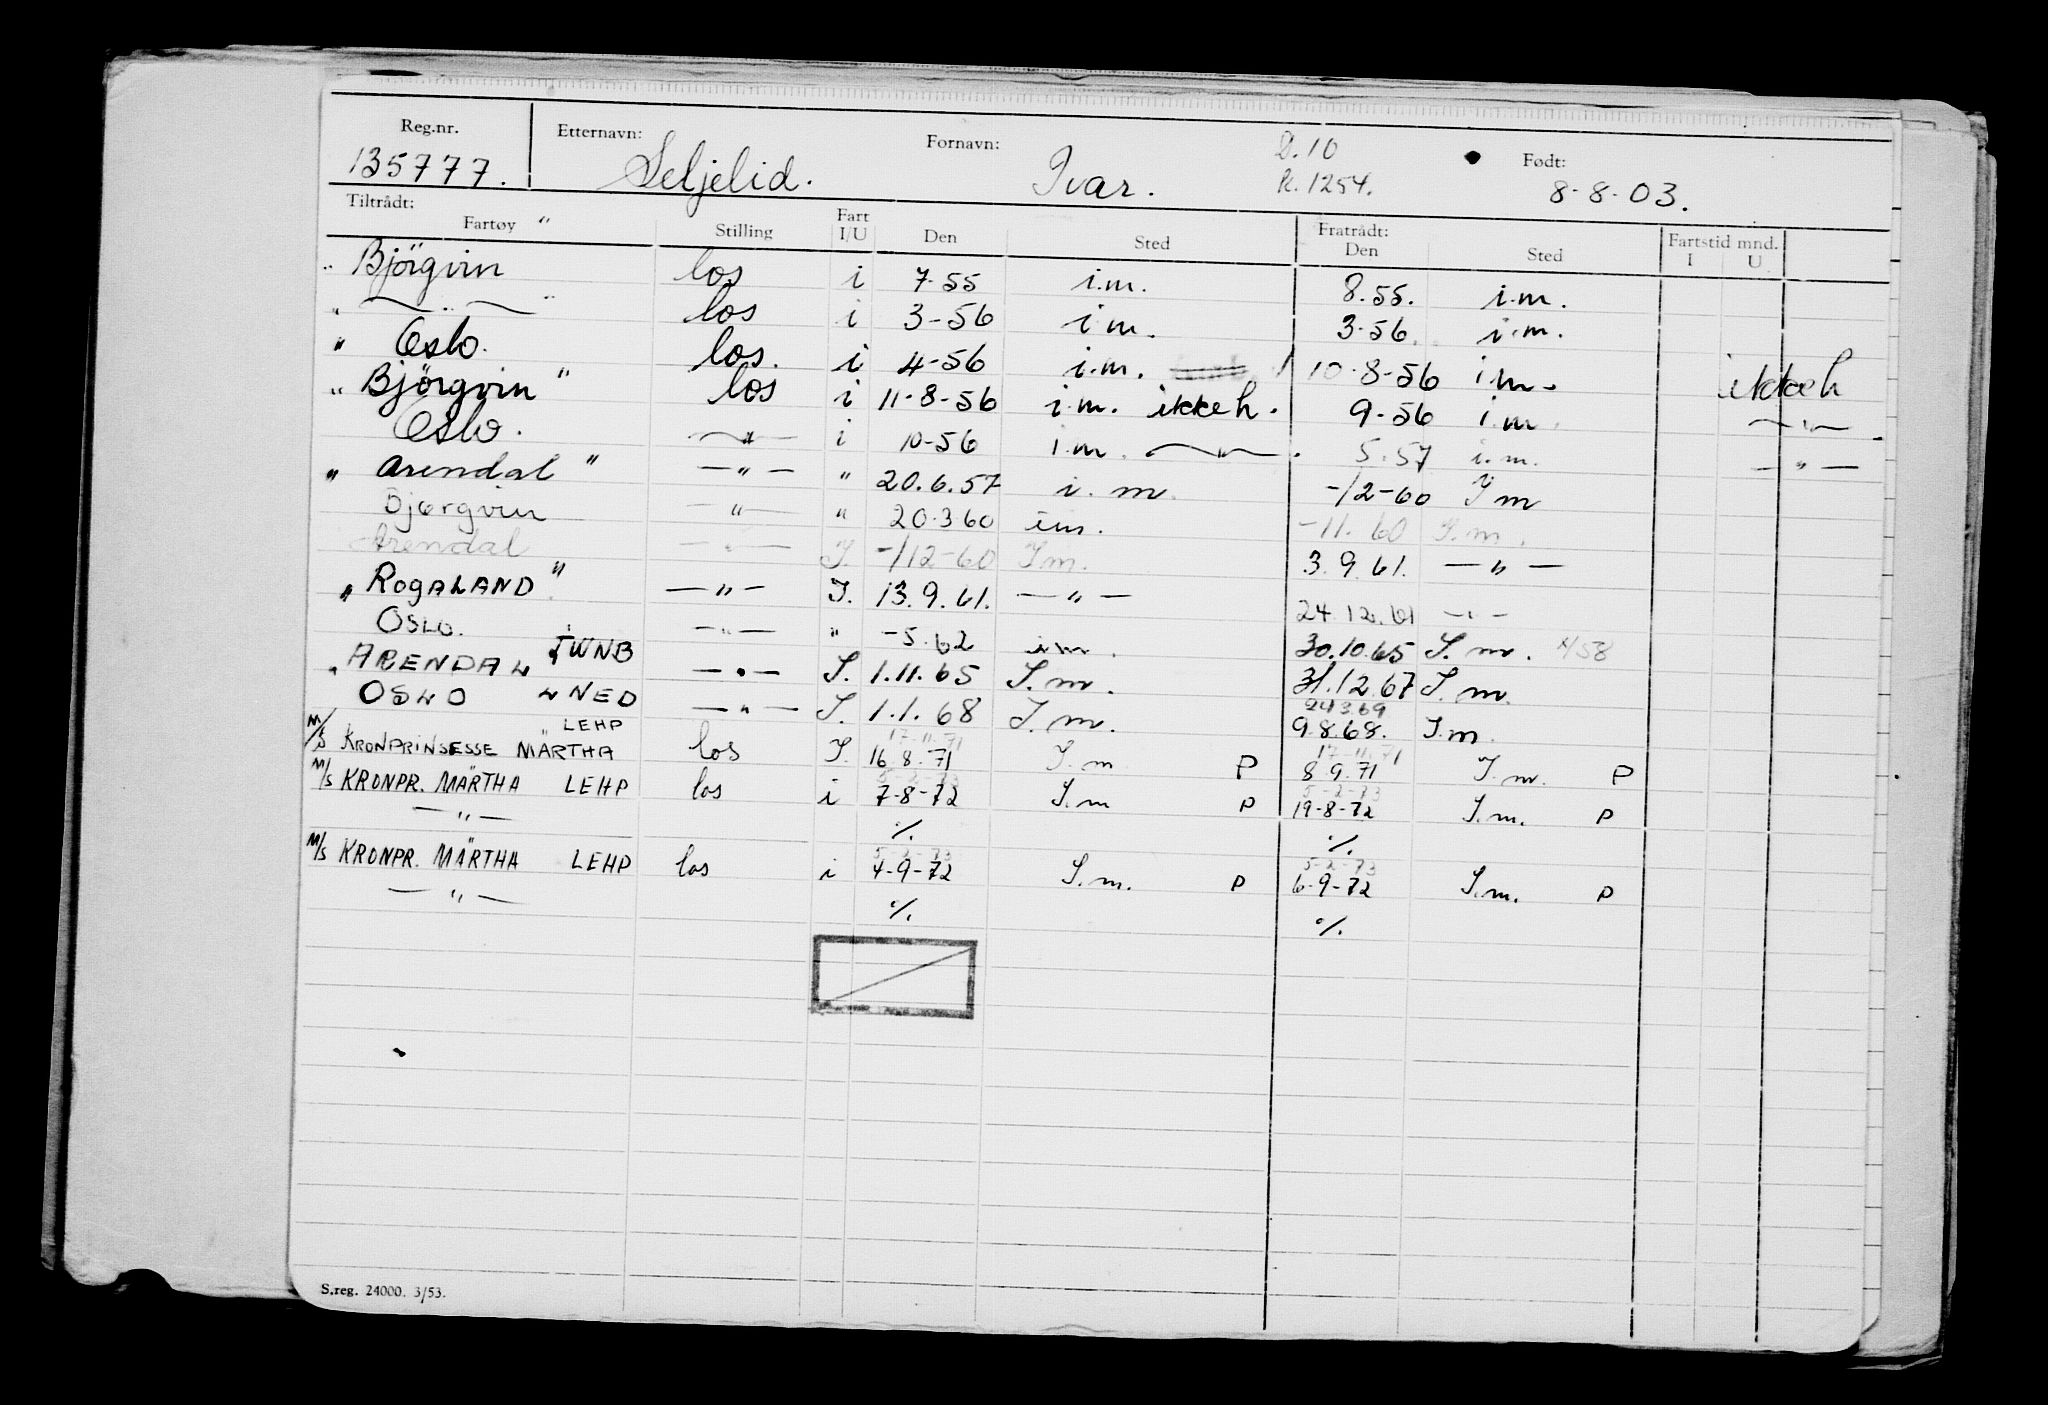 Reg.nr. Etternavn: Fornavn: D.10 Født:
135777. Seljelid. Ivar. R.1254. 8-8-03.
Tiltrådt: Fratrådt:
Fartøy " Stilling Fart I/U Den Sted Den Sted Fartstid mnd. I U
" Björgvin los i 7-55 i.m. 8.55. i.m.
" —"— " los i 3-56 i.m. 3-56. i.m.
" Oslo. los. i 4-56 i.m. 10-8-56 i.m. ikke h
" Björgvin " los i 11-8-56 i.m. ikke h. 9-56 i.m. —"—
Oslo. —"— i 10-56 i.m. —"— . 5.57 i.m. —"—
" Arendal " —"— " 20.6.57 i.m. -/2-60 I m
Bjørgvin —"— " 20.3.60 im. -11.60 I.m.
Arendal —"— I. -/12-60 Im. 3.9.61. —"—
" ROGALAND " —"— I. 13.9.61. —"— 24.12.61 —"—
OSLO. —"— " -5.62 im. 30.10.65 I.m. 4/58
" ARENDAL JWNB —"— I. 1.11.65 I.m. 31.12.67 I.m.
OSLO LNED —"— I. 1.1.68 I.m. 24.3.69 9.8.68. I.m.
M/S KRONPRINSESSE MÄRTHA LEHP los I. 17.11.71 16.8.71 I.m P 17.11.71 8.9.71 I.m. P
M/S KRONPR. MÄRTHA LEHP los i 5-2-73 7-8-72 I.m P 5-2-73 19-8-72 I.m. P
—"— %. %.
M/S KRONPR. MÄRTHA LEHP los i 5-2-73 4-9-72 I.m. P 5-2-73 6-9-72 I.m. P
—"— %. %.
S.reg. 24000. 3/53.